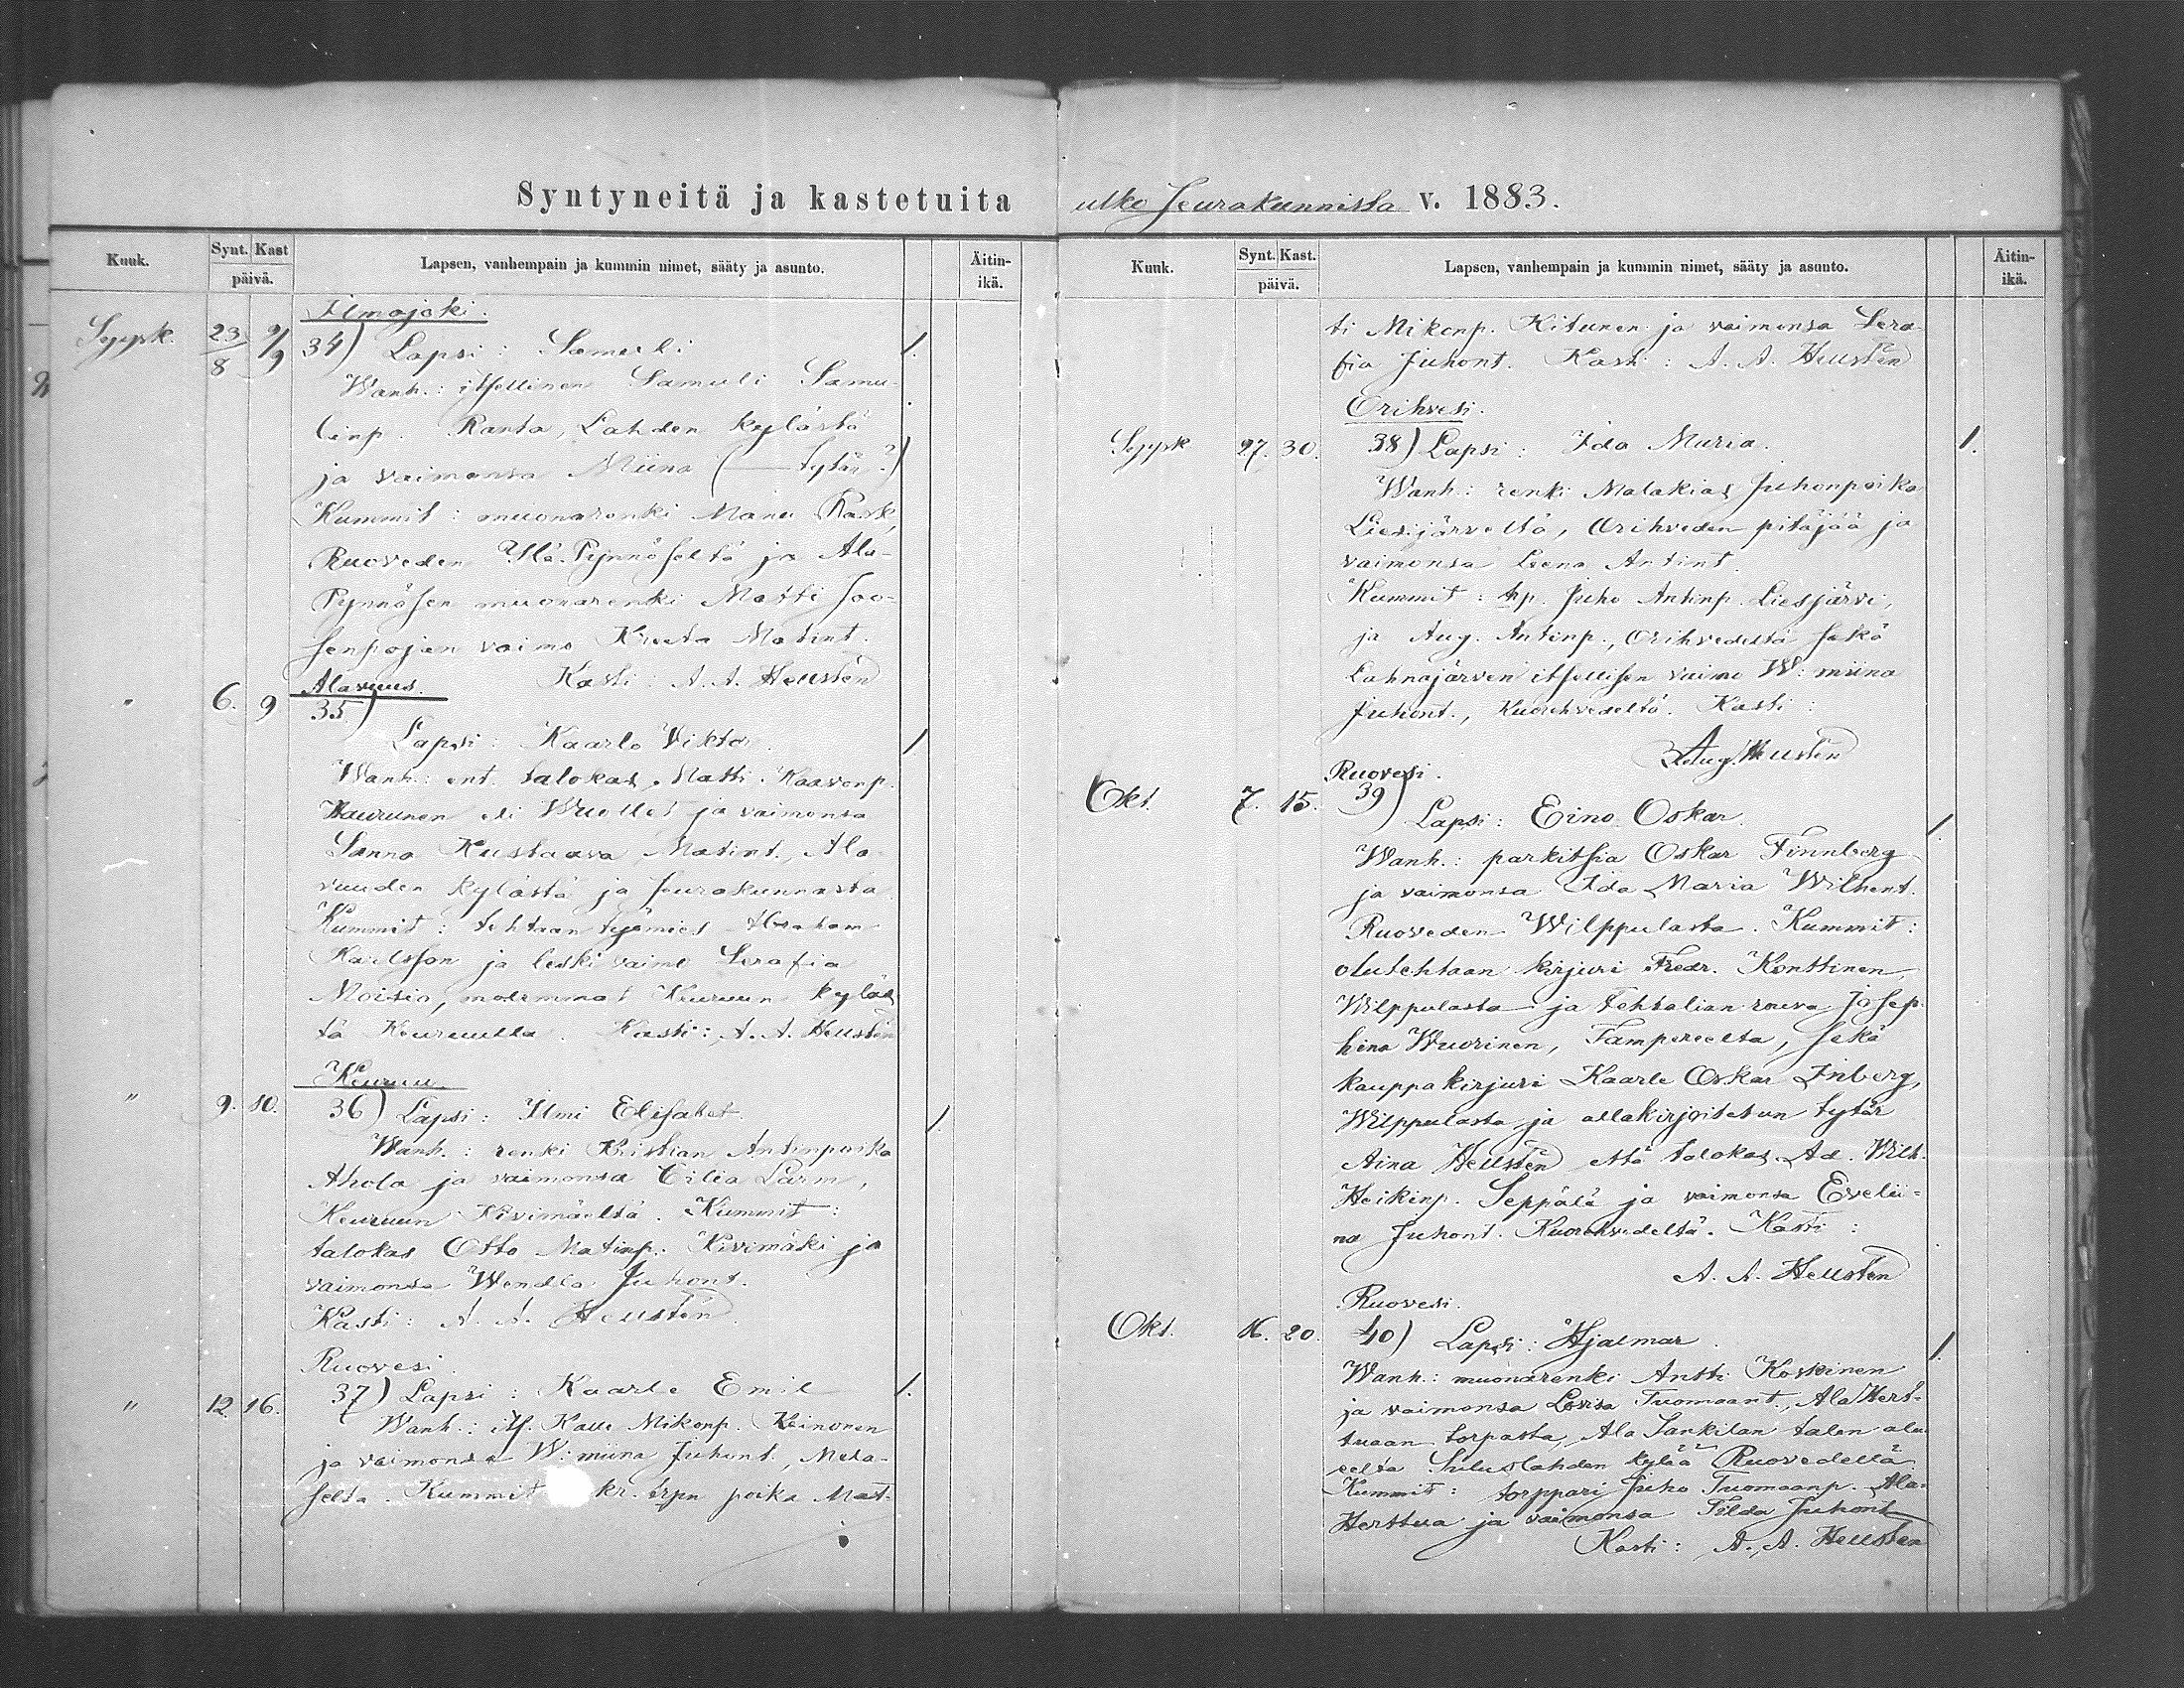 Syntyneitä ja kastetuita ulko seurakunnista v. 1883.
Kuuk. Synt. Kast päivä. Lapsen, vanhempain ja kummin nimet, sääty ja asunto. Äitin-ikä.
Ilmajoki.
Syysk. 23/8 9/9 34) Lapsi: Samuli 1.
Wanh.: itsellinen Samuli Samu-
linp. Ranta, Lahden kylästä
ja vaimonsa Miina (— tytär?)
Kummit: muonarenki Manu Rask,
Ruoveden Ylä-Pynnöseltä ja Ala-
Pynnösen muonarenki Matti Joo-
senpojan vaimo Kreeta Matint.
Kasti: A. A. Hellstén
Alavuus.
" 6. 9 35)
Lapsi: Kaarlo Viktor 1
Wanh.: ent. talokas Matti Kaavonp.
Kaurunen eli Wuolles ja vaimonsa
Sanna Kustaava Matint., Ala-
vuuden kylästä ja seurakunnasta.
Kummit: tehtaan työmies Abraham
Karlsson ja leski vaimo Serafia
Moisio, molemmat Keuruun kyläs-
tä Keuruulla. Kasti: A. A. Hellstén
Keuruu.
" 9. 10. 36) Lapsi: Ilmi Elisabet. 1.
Wanh.: renki Kristian Antinpoika
Ahola ja vaimonsa Cilia Larm,
Keuruun Kivimäeltä. Kummit:
talokas Otto Matinp. Kivimäki ja
vaimonsa Wendla Juhont.
Kasti: A. A. Hellstén.
Ruovesi.
" 12. 16. 37) Lapsi: Kaarle Emil 1.
Wanh.: its. Kalle Mikonp. Keinonen
ja vaimonsa W:miina Juhont.,
selta. Kummit kr. trpn poika Mat-
Kuuk. Synt. Kast. päivä. Lapsen, vanhempain ja kummin nimet, sääty ja asunto. Äitin-ikä.
ti Mikonp. Kitunen ja vaimonsa Sera-
fia Juhont. Kasti: A. A. Hellstén
Orihvesi.
Syysk. 27. 30. 38) Lapsi: Ida Maria. 1.
Wanh.: renki Malakias Juhonpoika
Liesijärveltä, Orihveden pitäjää ja
vaimonsa Leena Antint.
Kummit: tp. Juho Antinp. Liesjärvi,
ja Aug. Antinp., Orihvedeltä sekä
Lahnajärven itsellisen vaimo W:miina
Juhont., Kuorehvedeltä. Kasti:
Aug. Hellstén
Ruovesi.
Okt. 7. 15. 39)
Lapsi: Eino Oskar. 1.
Wanh.: parkitsia Oskar Finnberg
ja vaimonsa Ida Maria Wilhent.
Ruoveden Wilppulasta. Kummit:
olutehtaan kirjuri Fredr. Konttinen,
Wilppulasta ja tehtalian rouva Josep-
hina Wuorinen, Tampereelta, sekä
kauppakirjuri Kaarle Oskar Inberg,
Wilppulasta ja allakirjoitetun tytär
Aina Hellstén että talokas Ad. Wilh.
Heikinp. Seppälä ja vaimonsa Evelii-
na Juhont. Kuorehvedeltä. Kasti:
A. A. Hellsten
Ruovesi.
Okt. 16. 20. 40) Lapsi: Hjalmar. 1.
Wanh.: muonarenki Antti Koskinen
ja vaimonsa Lovisa Tuomaant., Ala Hert-
tuaan torpasta, Ala Sankilan talon alu-
eelta kylää Ruovedellä.
Kummit: torppari Juho Tuomaanp. Ala-
Herttua ja vaimonsa Tilda Juhont.
Kasti: A. A. Hellsten